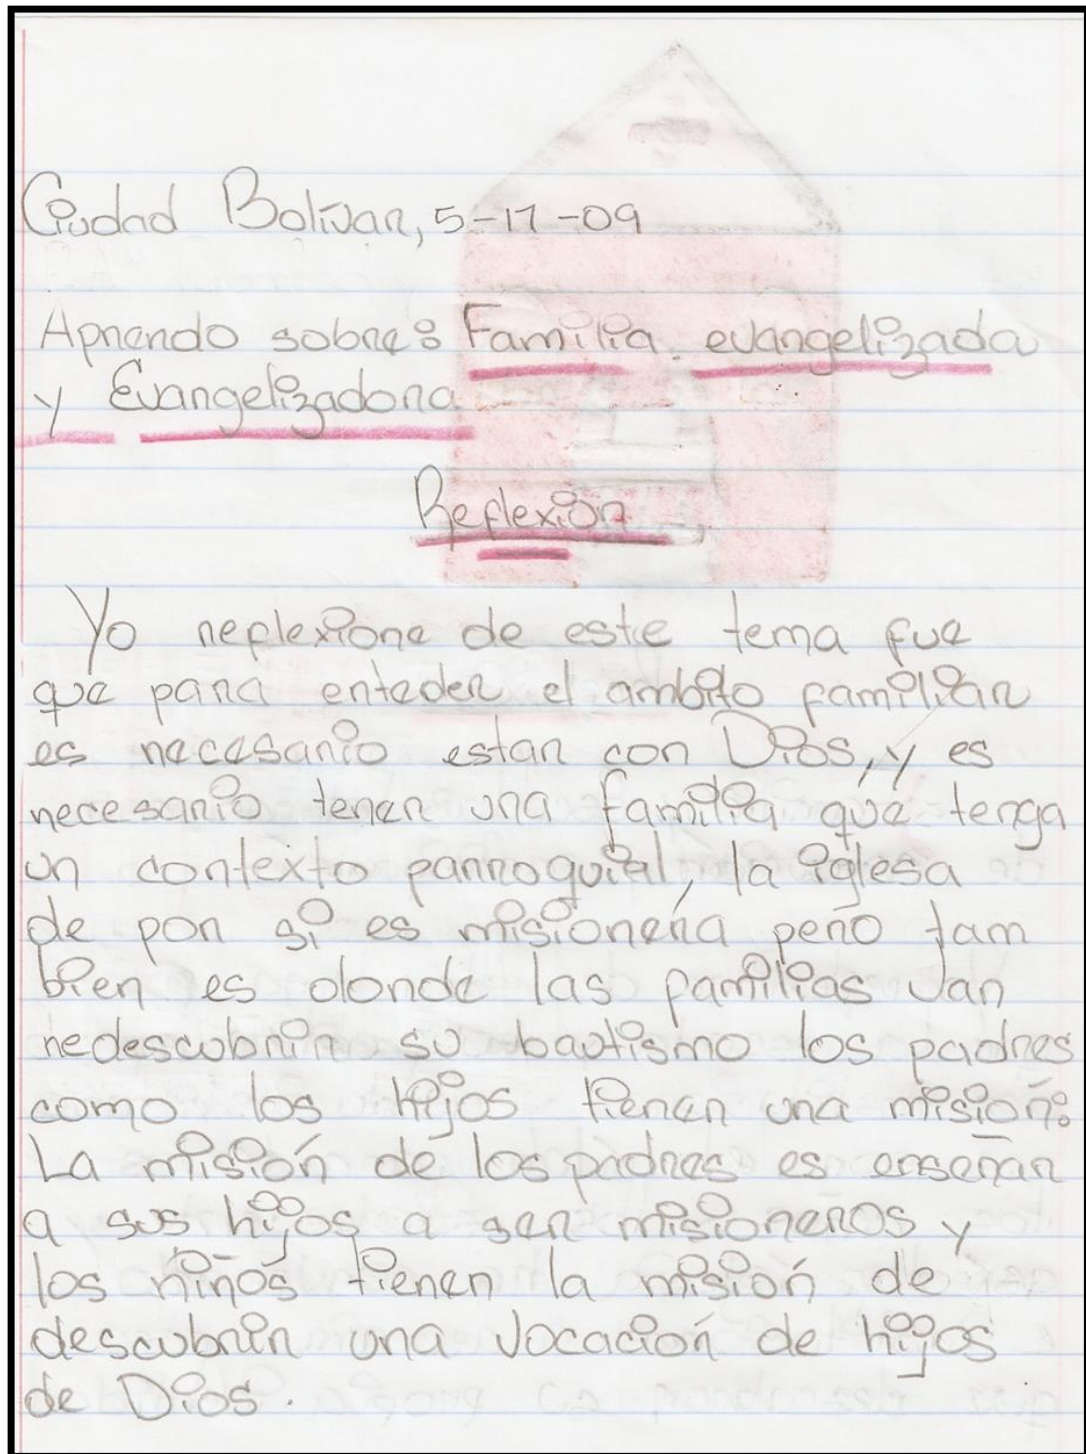 Ciudad Bolívar, 5-17-09
Aprendo sobre: Familia evangelizada
y Evangelizadora
Reflexión
Yo reflexione de este tema fue
que para enteder el ambito familiar
es necesario estar con Dios, y es
necesario tener una familia que tenga
un contexto parroquial, la iglesa
de por si es misionera pero tam
bien es donde las familias van
redescubrir su bautismo los padres
como los hijos tienen una misión:
La misión de los padres es enseñar
a sus hijos a ser misioneros y
los niños tienen la misión de
descubrir una vocación de hijos
de Dios.